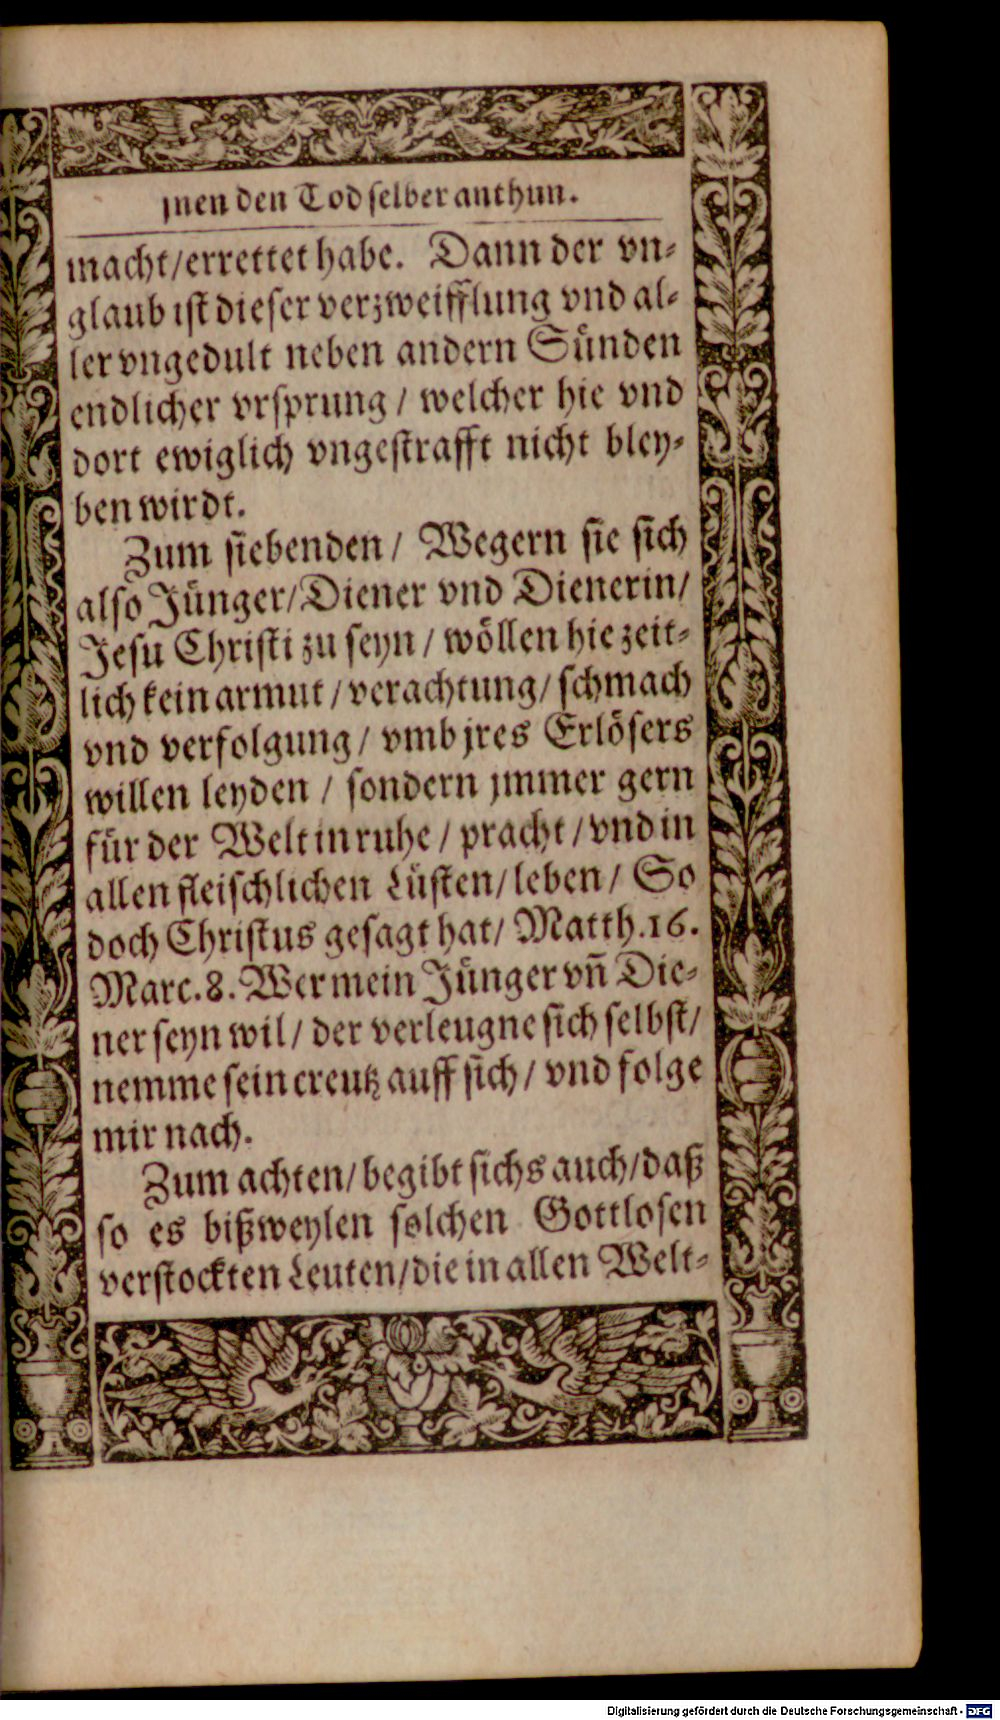 jnen den Tod selber anthun.
macht/errettet habe. Dann der vn-
glaub ist dieser verzweifflung vnd al-
ler vngedult neben andern Sünden
endlicher vrsprung / welcher hie vnd
dort ewiglich vngestrafft nicht bley-
ben wirdt.
Zum siebenden / Wegern sie sich
also Jünger/Diener vnd Dienerin/
Jesu Christi zu seyn / wöllen hie zeit-
lich kein armut / verachtung/ schmach
vnd verfolgung / vmb jres Erlösers
willen leyden / sondern jmmer gern
für der Welt in ruhe / pracht / vnd in
allen fleischlichen Lüsten/ leben / So
doch Christus gesagt hat/ Matth.16.
Marc.8. Wer mein Jünger vñ Die-
ner seyn wil / der verleugne sich selbst/
nemme sein creutz auff sich / vnd folge
mir nach.
Zum achten/begibt sichs auch/daß
so es bißweylen solchen Gottlosen
verstockten Leuten/die in allen Welt-
Digitalisierung gefördert durch die Deutsche Forschungsgemeinschaft - DFG